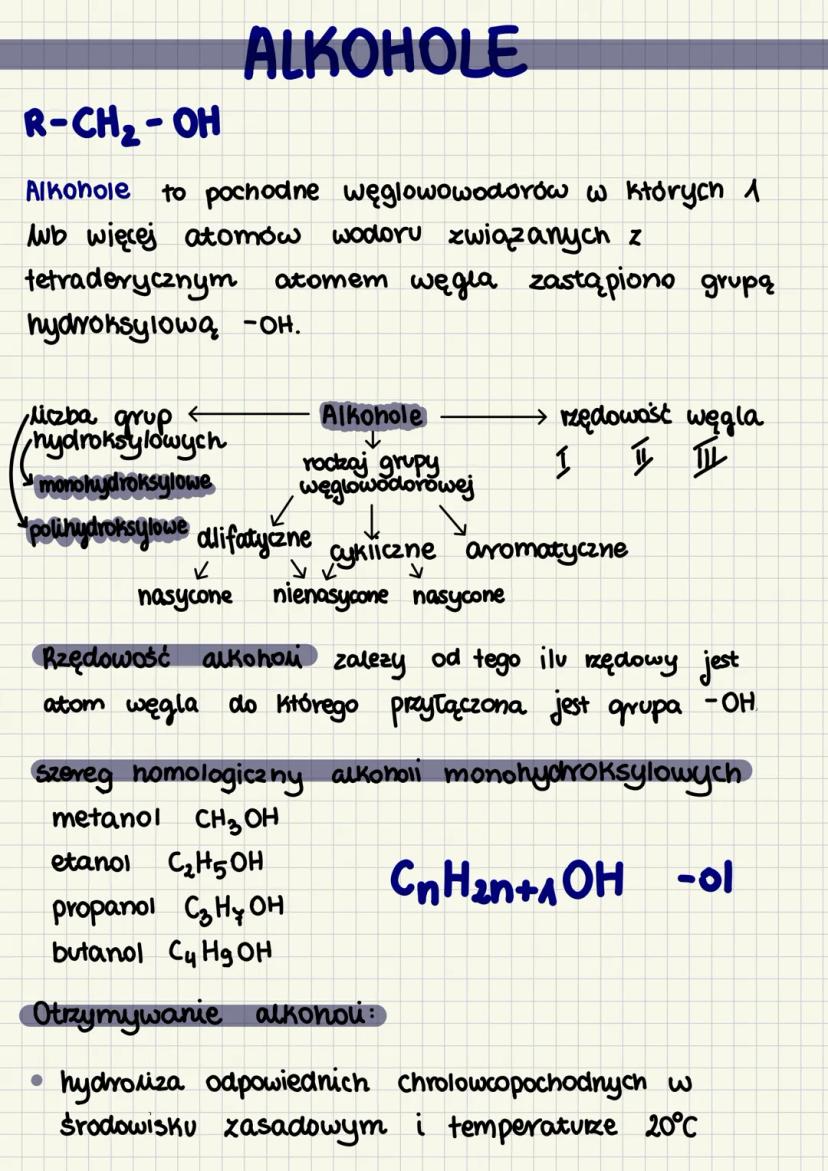 ALKOHOLE
R-CH₂-OH
Alkohole to pochodne węglowowodorów w których 1
lub więcej atomów wodoru związanych z
tetraderycznym atomem węgla zastąpiono grupą
hydroksylową -OH.
liczba grup ← Alkohole → rzędowość węgla
hydroksylowych
I II III
rodzaj grupy
węglowodorowej
monohydroksylowe
polihydroksylowe
alifatyczne cykliczne aromatyczne
nasycone nienasycone nasycone
Rzędowość alkoholi zależy od tego ilu rzędowy jest
atom węgla do którego przyłączona jest grupa -OH.
szereg homologiczny alkoholi monohydroksylowych
metanol CH₃OH
etanol C₂H₅OH
propanol C₃H₇OH
butanol C₄H₉OH
CₙH₂ₙ₊₁OH -ol
Otrzymywanie alkoholi:
• hydroliza odpowiednich chrolowcopochodnych w
środowisku zasadowym i temperaturze 20°C